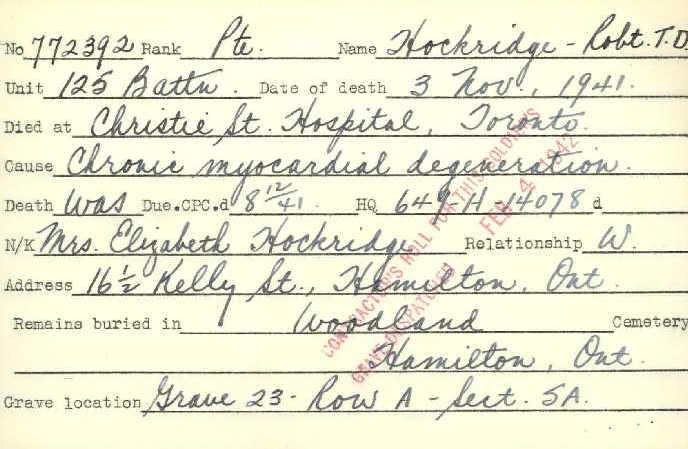 No 772392 Rank Pte. Name Hockridge - Robt. T.D
Unit 125 Battn. Date of death 3 Nov., 1941.
Died at Christie St. Hospital, Toronto.
Cause Chronic myocardial degeneration.
Death was Due.CPC.d 8 12/41. HQ 649-H-14078 d
N/K Mrs. Elizabeth Hockridge Relationship W.
Address 16 1/2 Kelly St., Hamilton, Ont.
Remains buried in Woodland Cemetery
Hamilton, Ont.
Grave location Grave 23 - Row A - Sect. 5A.
CONTRACTORS ROLL FOR THIS SOLDIERS
FEB 4 1942